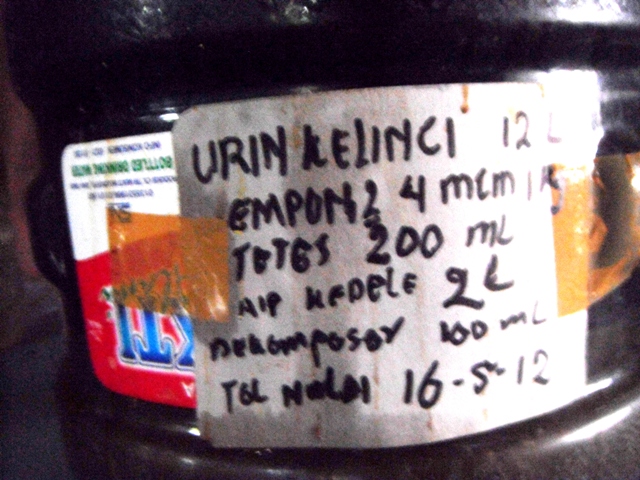 URIN KELINCI 12 L
EMPON2 4 mcm
TETES 200 mL
AIR KEDELE 2 L
DEKOMPOSER 100 mL
TGL MULAI 16-5-12
BOTTLED DRINKING WATER